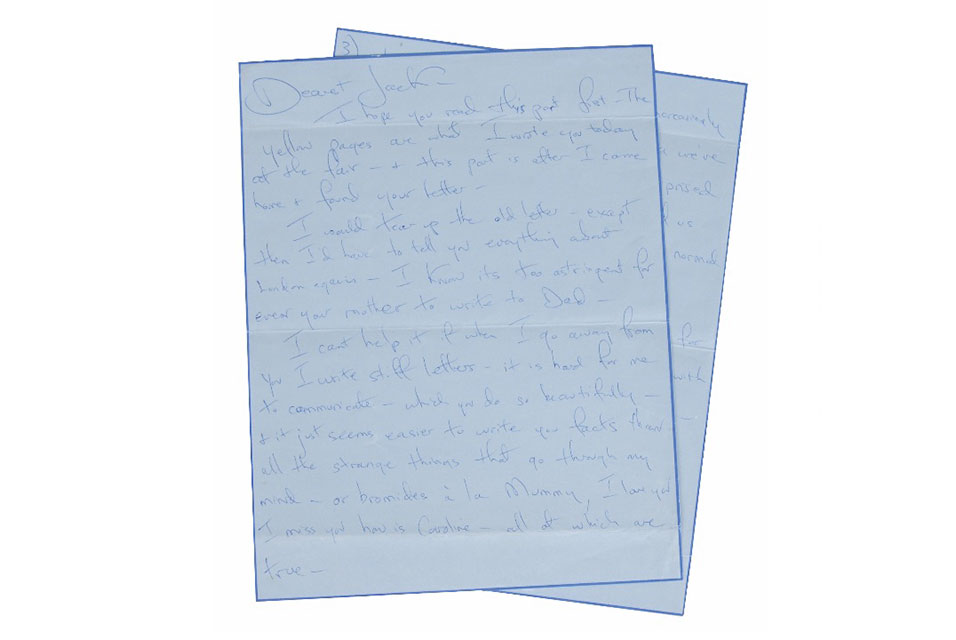 Dearest Jack —
I hope you read this part first — The
yellow pages are what I wrote you today
at the fair — & this part is after I came
home & found your letter —
I would tear up the old letter — except
then I'd have to tell you everything about
London again — I know its too astringent for
even your mother to write to Dad —
I cant help it if when I go away from
you I write stiff letters — it is hard for me
to communicate — which you do so beautifully —
& it just seems easier to write you facts than
all the strange things that go through my
mind — or bromides à la Mummy, I love you
I miss you how is Caroline — all of which are
true —
3)
increasingly
we've
passed
us
normal
for
with